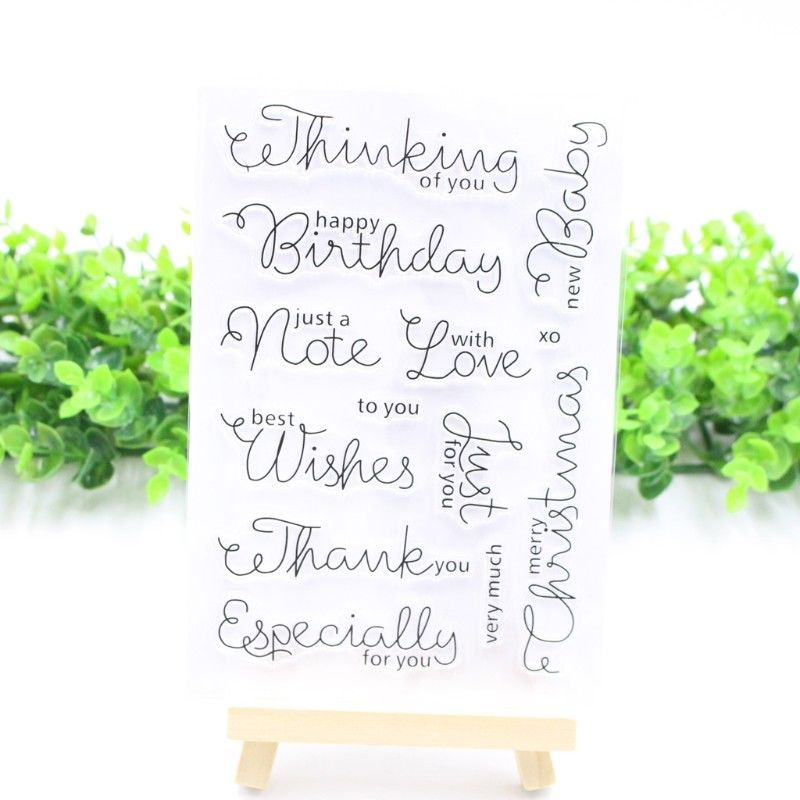 Thinking
of you
happy
Birthday
just a
Note
with
Love
xo
to you
best
Wishes
Just
for you
Thank you
very much
Especially
for you
new Baby
merry
Christmas